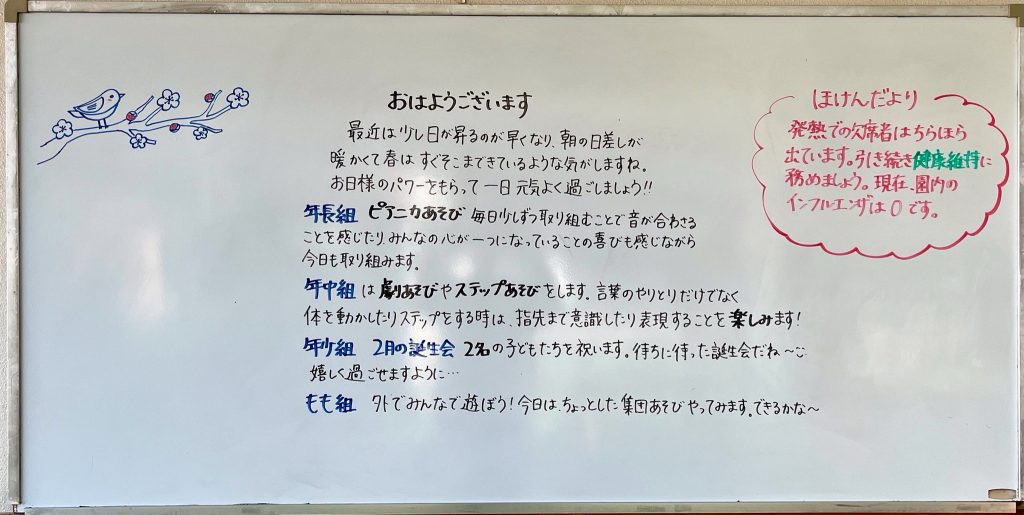 おはようございます
最近は少し日が昇るのが早くなり、朝の日差しが
暖かくて春は、すぐそこまできているような気がしますね。
お日様のパワーをもらって一日元気よく過ごしましょう!!
年長組 ピアニカあそび 毎日少しずつ取り組むことで音が合わさる
ことを感じたり、みんなの心が一つになっていることの喜びも感じながら
今日も取り組みます。
年中組 は劇あそびやステップあそびをします。言葉のやりとりだけでなく
体を動かしたりステップをする時は、指先まで意識したり表現することを楽しみます!
年少組 2月の誕生会 2名の子どもたちを祝います。待ちに待った誕生会だね〜
嬉しく過ごせますように…
もも組 外でみんなで遊ぼう!今日は、ちょっとした集団あそびやってみます。できるかな〜
ほけんだより
発熱での欠席者はちらほら
出ています。引き続き健康維持に
務めましょう。現在、園内の
インフルエンザは0です。